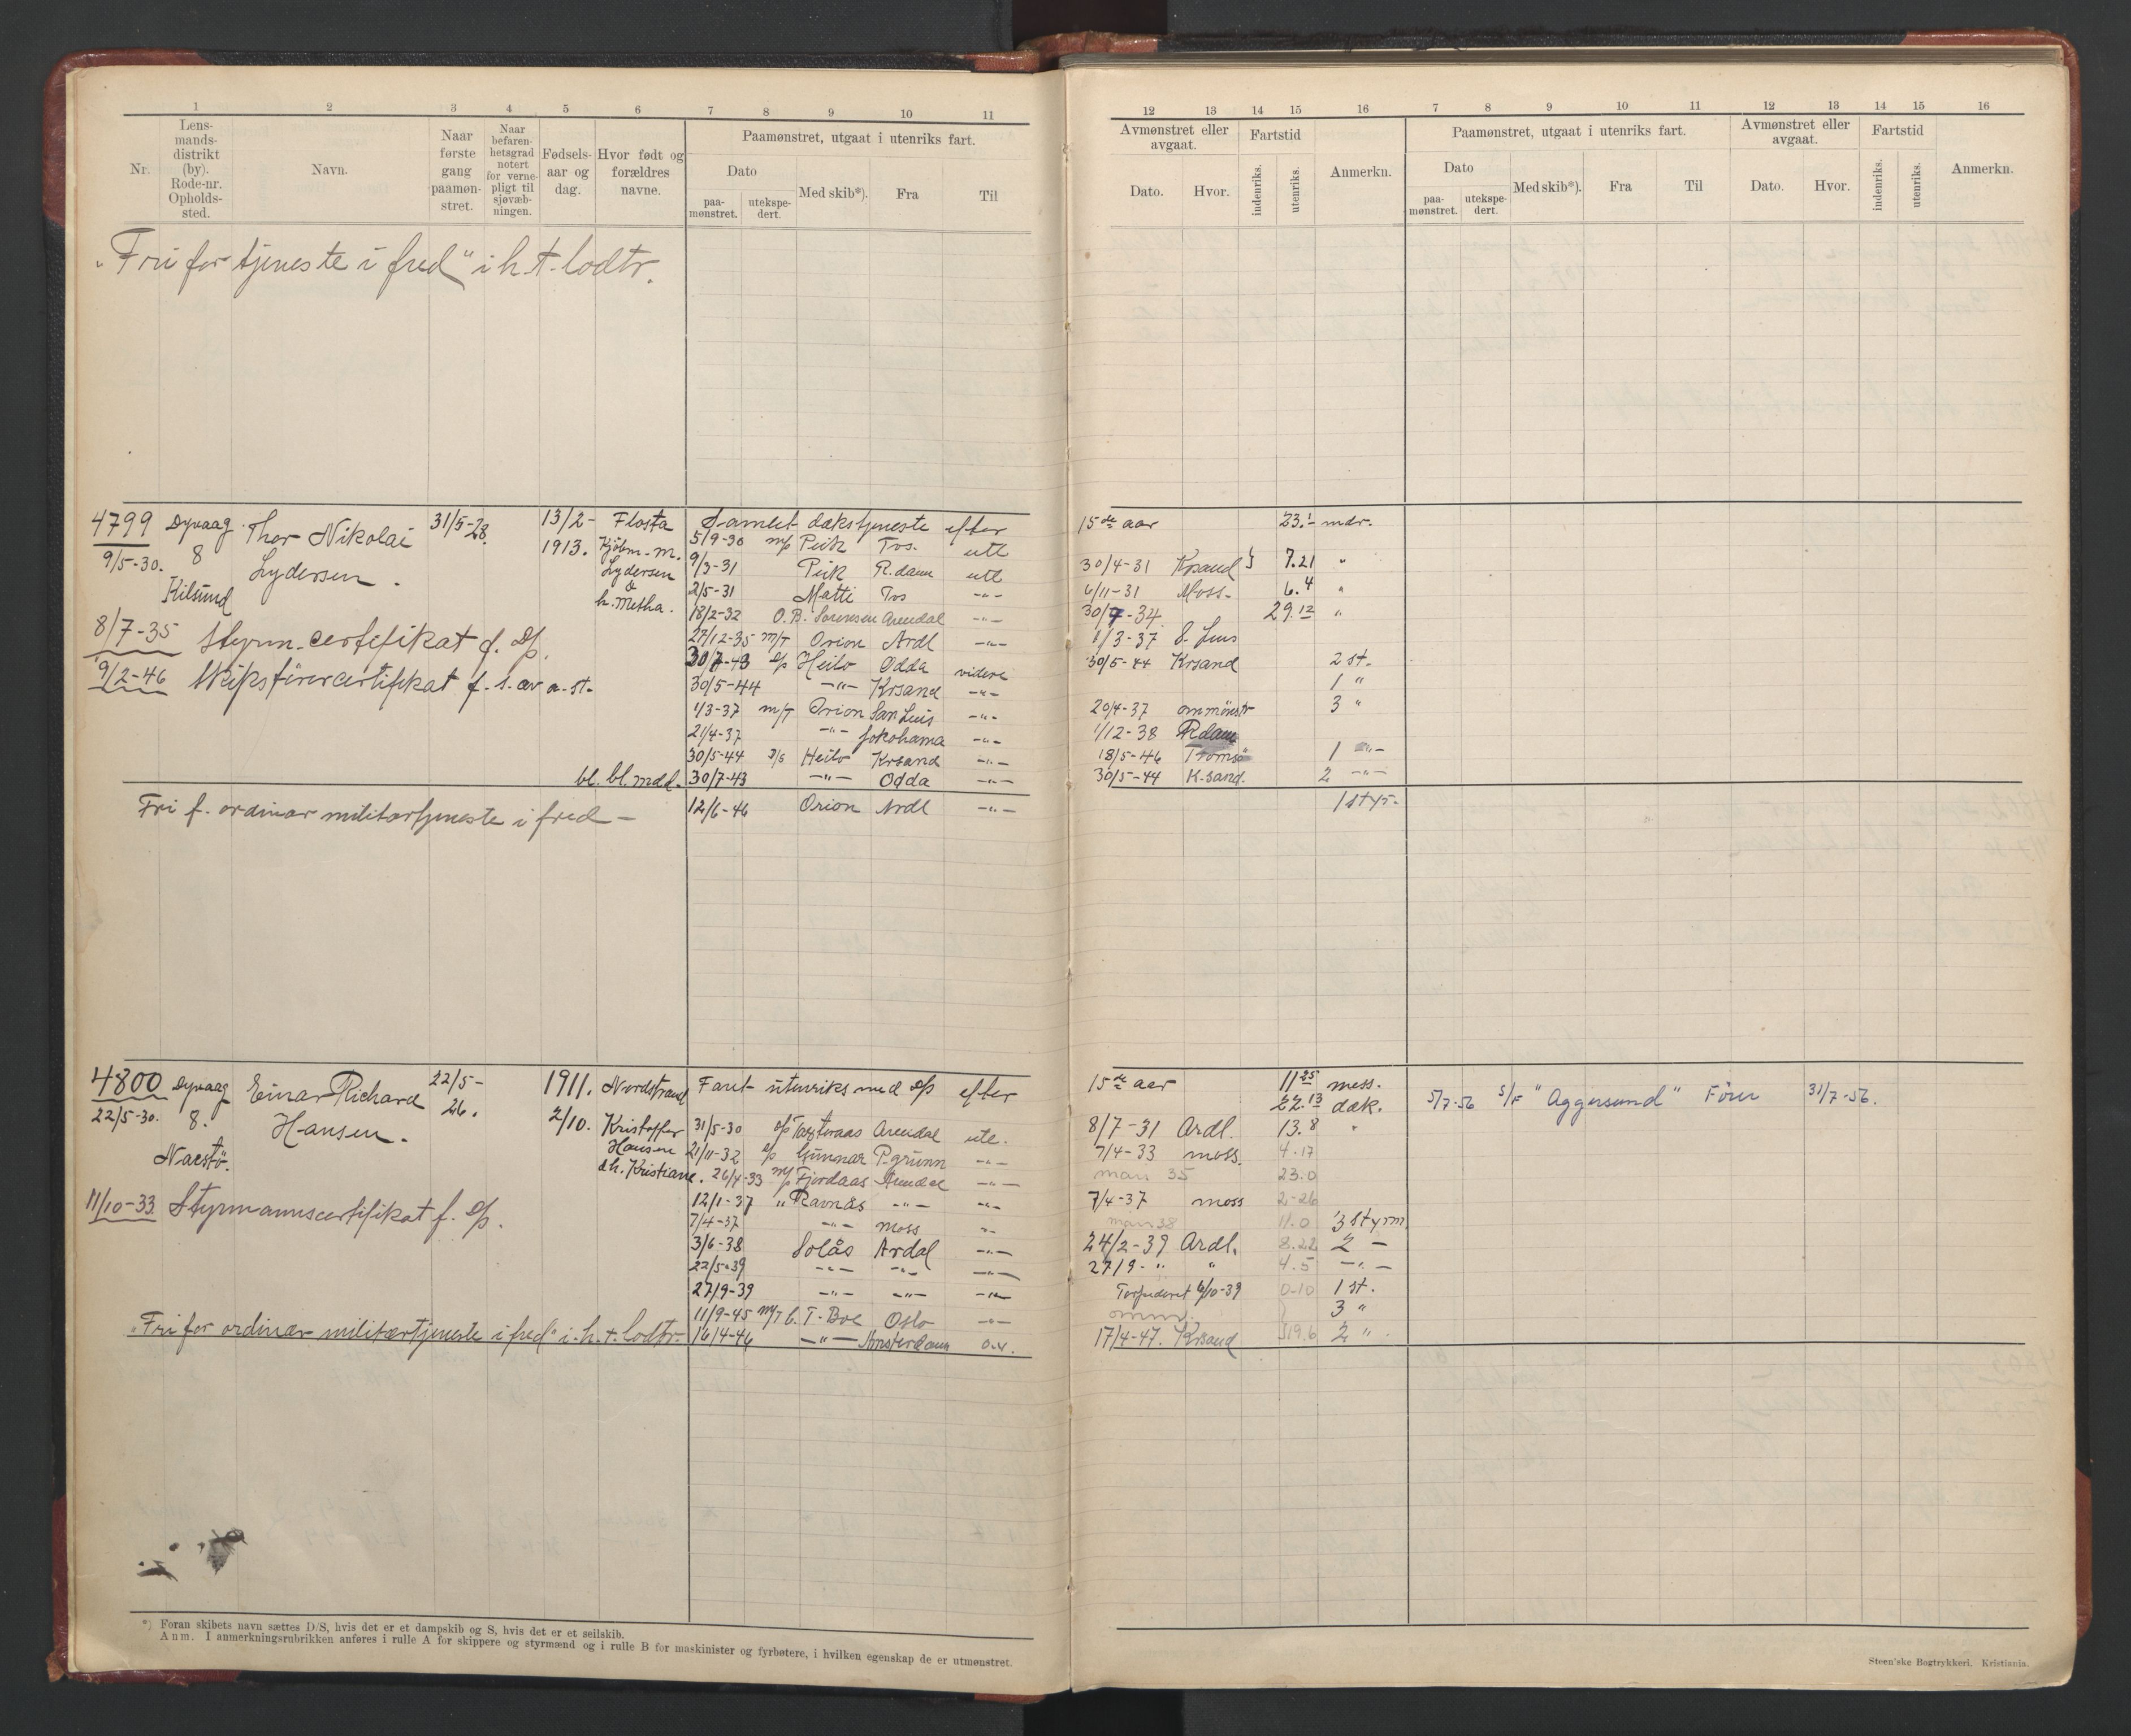 1 2 3 4 5 6 7 8 9 10 11
Nr.
Lens-
mands-
distrikt
(by).
Rode-nr.
Opholds-
sted.
Navn.
Naar
første
gang
paamøn-
stret.
Naar
befaren-
hetsgrad
notert
for verne-
pligt til
sjøvæb-
ningen.
Fødsels-
aar og
dag.
Hvor født og
forældres
navne.
Paamønstret, utgaat i utenriks fart.
Dato
paa-
mønstret.
utekspe-
dert.
Med skib*).
Fra
Til
„Fri for tjeneste i fred" i h. t. lodtr.
4799 Dyvaag Thor Nikolai 31/5-28. 13/2- Flosta Samlet dækstjeneste efter
9/5-30. 8 Lydersen. 1913. Kjøbm. M. 5/9-30 m/s Peik Tvs. utl
Kilsund Lydersen 9/3-31 Peik R.dam utl
& 2/5-31 Matti Tvs -"-
h. Metha. 18/2-32 O. B. Sørensen Arendal -"-
8/7-35 Styrm.certifikat f. D/s. 27/12-35 m/T Orion Ardl -"-
30/7-43 D/s Heilo Odda videre
9/2-46 Skipsførercertifikat f. s. av a. st. 30/5-44 -"- Krsand -"-
1/3-37 m/T Orion San Luis -"-
21/4-37 -"- Jokohama -"-
30/5-44 D/S Heilo Krsand -"-
bl. bl. mdl. 30/7-43 -"- Odda -"-
Fri f. ordinær militærtjeneste i fred - 12/6-46 Orion Ardl -"-
4800 Dyvaag Einar Richard 22/5-26. 1911. Nordstrand Faret utenriks med D/s efter
22/5-30. 8. Hansen. 2/10. Kristoffer 31/5-30 D/s Arendal utl.
Næstø. Hansen 21/11-32 D/s Gunnar P.grunn -"-
& h. Kristiane. 26/4-33 m/s Fjordaas Arendal -"-
11/10-33 Styrmannscertifikat f. D/s. 12/1-37 " Ravnås -"- -"-
7/4-37 -"- Moss -"-
3/6-38 Solås Ardal -"-
22/5-39 -"- -"- -"-
27/9-39 -"- -"- -"-
11/9-45 m/T C. T. Boe Oslo -"-
„Fri for ordinær militærtjeneste i fred" i. h. t. lodtr. 16/4-46 -"- Amsterdam o.v.
*) Foran skibets navn sættes D/S, hvis det er et dampskib og S, hvis det er et seilskib.
Anm. I anmerkningsrubrikken anføres i rulle A for skippere og styrmænd og i rulle B for maskinister og fyrbøtere, i hvilken egenskap de er utmønstret.
12 13 14 15 16 7 8 9 10 11 12 13 14 15 16
Avmønstret eller
avgaat.
Dato.
Hvor.
Fartstid
indenriks.
utenriks.
Anmerkn.
Paamønstret, utgaat i utenriks fart.
Dato
paa-
mønstret.
utekspe-
dert.
Med skib*).
Fra
Til
Avmønstret eller
avgaat.
Dato.
Hvor.
Fartstid
indenriks.
utenriks.
Anmerkn.
15de aar 23.1 mdr.
30/4-31 Krsand } 7.21 "
6/11-31 Moss- 6.4 "
30/7-34. 29.12 "
1/3-37 S. Luis
30/5-44 Krsand 2 st.
1 "
20/4-37 ommønstr 3 "
1/12-38 Rdam
18/5-46 Tromsø 1 -"-
30/5-44 K.sand. 2 -"-
1 styr.
15de aar 11.25 mess.
22.13 dæk. 5/7-56 S/F "Aggersund" Fører 31/7-56.
8/7-31 Ardl. 13.8 "
7/4-33 moss. 4.17
mars 35 23.0
7/4-37 moss 2-26
mars 38 11.0 3 styrm.
24/2-39 Ardl. 8.22 2 -
27/9-" " 4.5 -"-
Torpederet 6/10-39 0-10 1 st.
omm. 3 "
17/4-47. Krsand 19.6 2 ".
Steen'ske Bogtrykkeri. Kristiania.